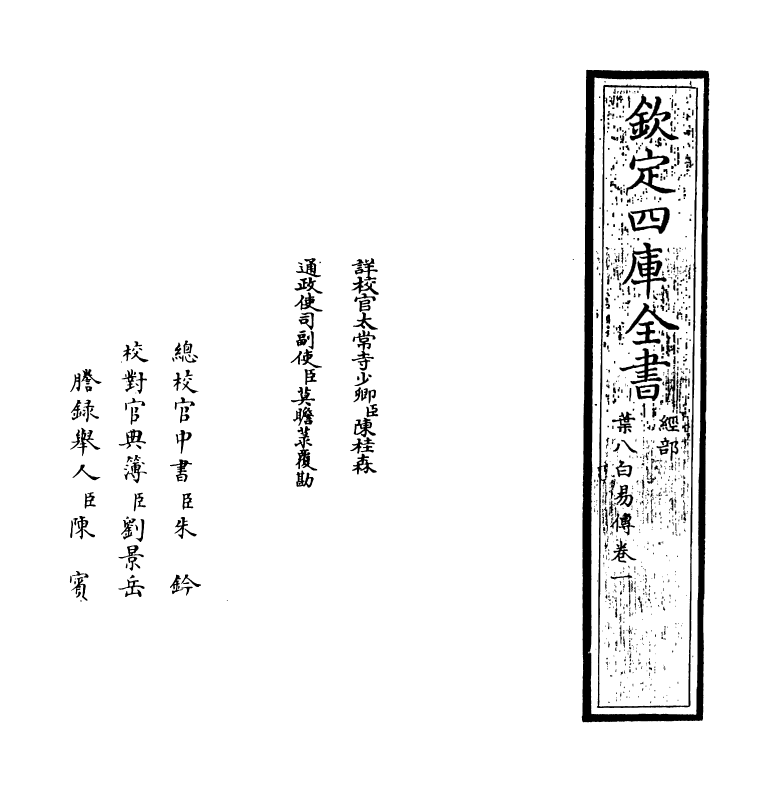 欽定四庫全書
經部
葉八白易傳卷一
詳校官太常寺少卿臣陳桂森
通政使司副使臣莫瞻菉覆勘
總校官中書臣朱鈐
校對官典簿臣劉景岳
謄錄舉人臣陳賓